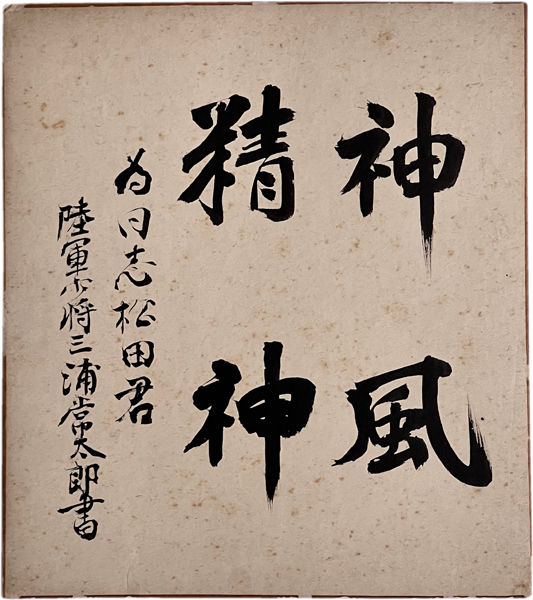 神風
精神
為同志松田君
陸軍少将三浦常太郎書